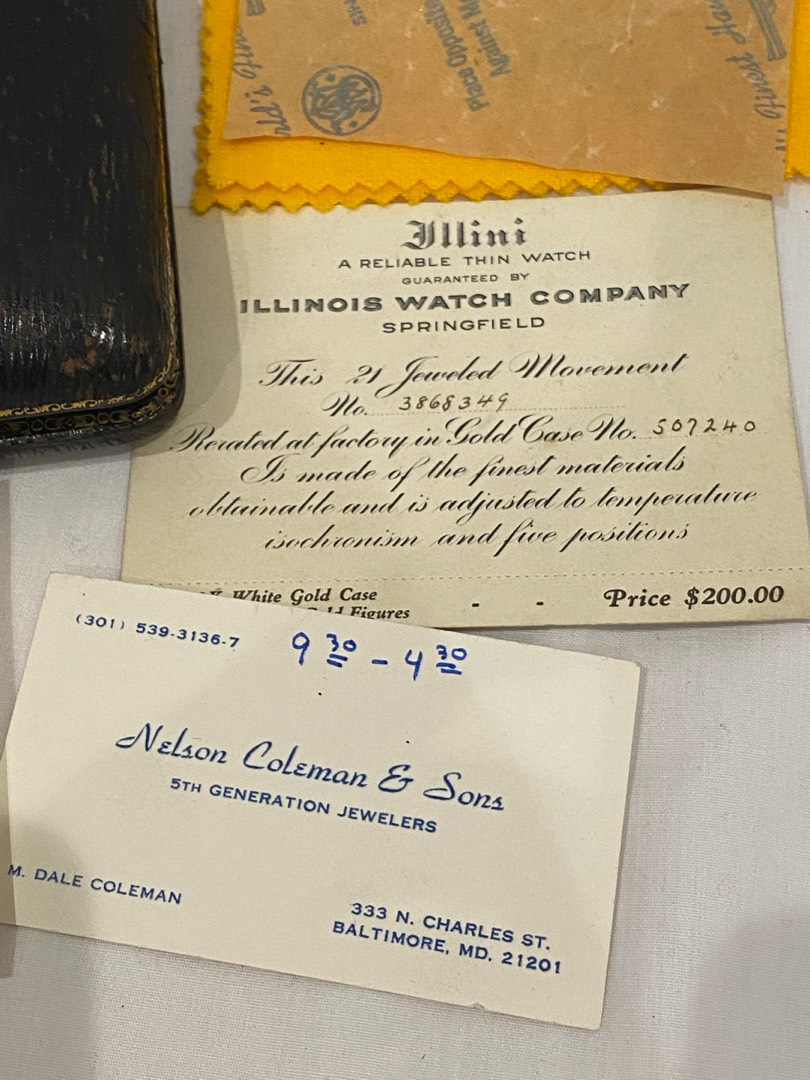 Place Opposite
Against
Illini
A RELIABLE THIN WATCH
GUARANTEED BY
ILLINOIS WATCH COMPANY
SPRINGFIELD
This 21 Jeweled Movement
No. 3868349
Rerated at factory in Gold Case No. 507240
Is made of the finest materials
obtainable and is adjusted to temperature
isochronism and five positions
White Gold Case
Figures - - Price $200.00
(301) 539-3136-7 9 30 - 4 30
Nelson Coleman & Sons
5TH GENERATION JEWELERS
M. DALE COLEMAN
333 N. CHARLES ST.
BALTIMORE, MD. 21201